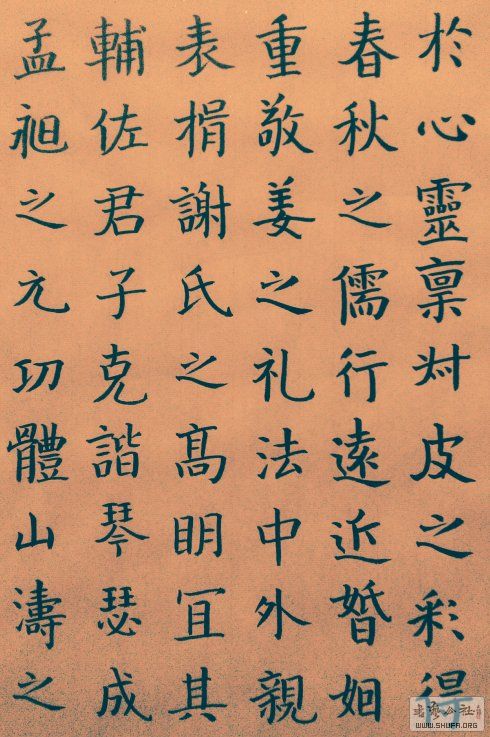 於心靈禀叔皮之彩得
春秋之儒行遠近婚姻
重敬姜之礼法中外親
表捐謝氏之髙明冝其
輔佐君子克諧琴瑟成
孟昶之元功體山濤之
书艺公社
WWW.SHUFA.ORG